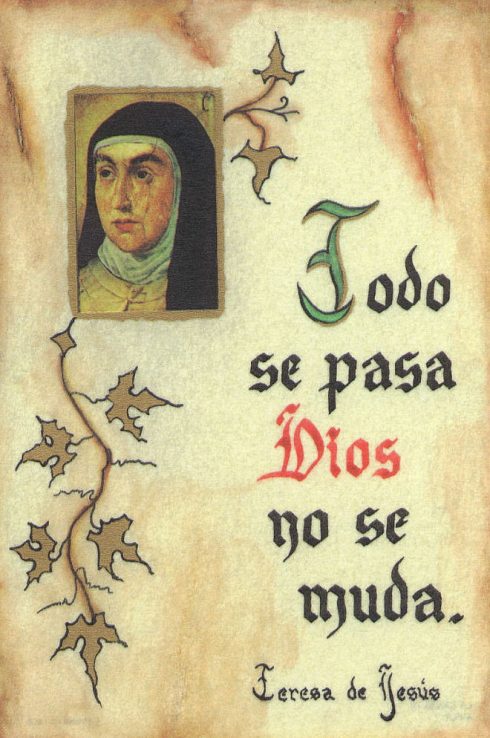 Todo
se pasa
Dios
no se
muda.
Teresa de Jesús